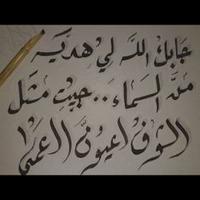 جابك الله لي هديه
من السماء .. جيت مثل
الشوف لعيون العمى